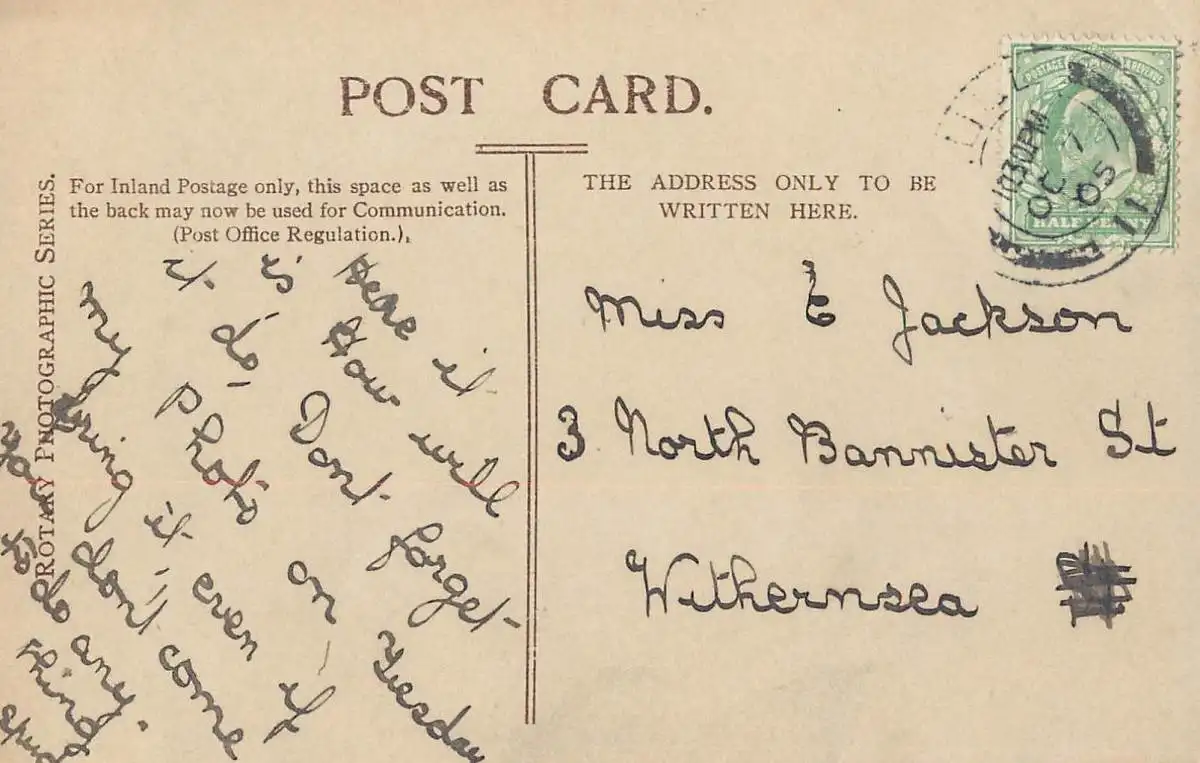 POST CARD.
ROTARY PHOTOGRAPHIC SERIES.
For Inland Postage only, this space as well as
the back may now be used for Communication.
(Post Office Regulation.)
THE ADDRESS ONLY TO BE
WRITTEN HERE.
Here it
is How will
it do, Dont forget
my Photo on Tuesday
bring it even if
you don't come
to do any-
thing
Miss E Jackson
3 North Bannister St
Withernsea
POSTAGE
1030PM
OC 1
05
11